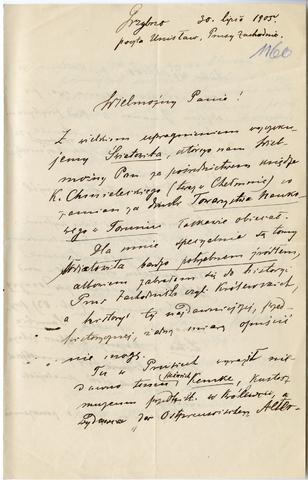 Grzybno 30. lipca 1905.
poczta Unisław, Prusy Zachodnie.
1160
Wielmożny Panie!
Z wielkiem upragnieniem wyczeku-
jemy Światowita, którego nam Wiel-
możny Pan za pośrednictwem księdza
K. Chmieleckiego (teraz z Chełmonia) w
zamian za druki Towarzystwa Nauko-
wego w Toruniu łaskawie obiecał.
Dla mnie specyalnie są tomy
Światowita bardzo potrzebnem źródłem,
albowiem zabrałem się do historyi
Prus Zachodnich czyli Królewskich,
a historyi tej najdawniejszej, przed-
historycznej, żadną miarą opuścić
nie mogę.
Tu w Prusiech wyszło nie-
dawno temu, Heinrich Kemke, kustosz
muzeum prodhist. w Królewcu, a
Zydawca der Ostpreussischen Alter-